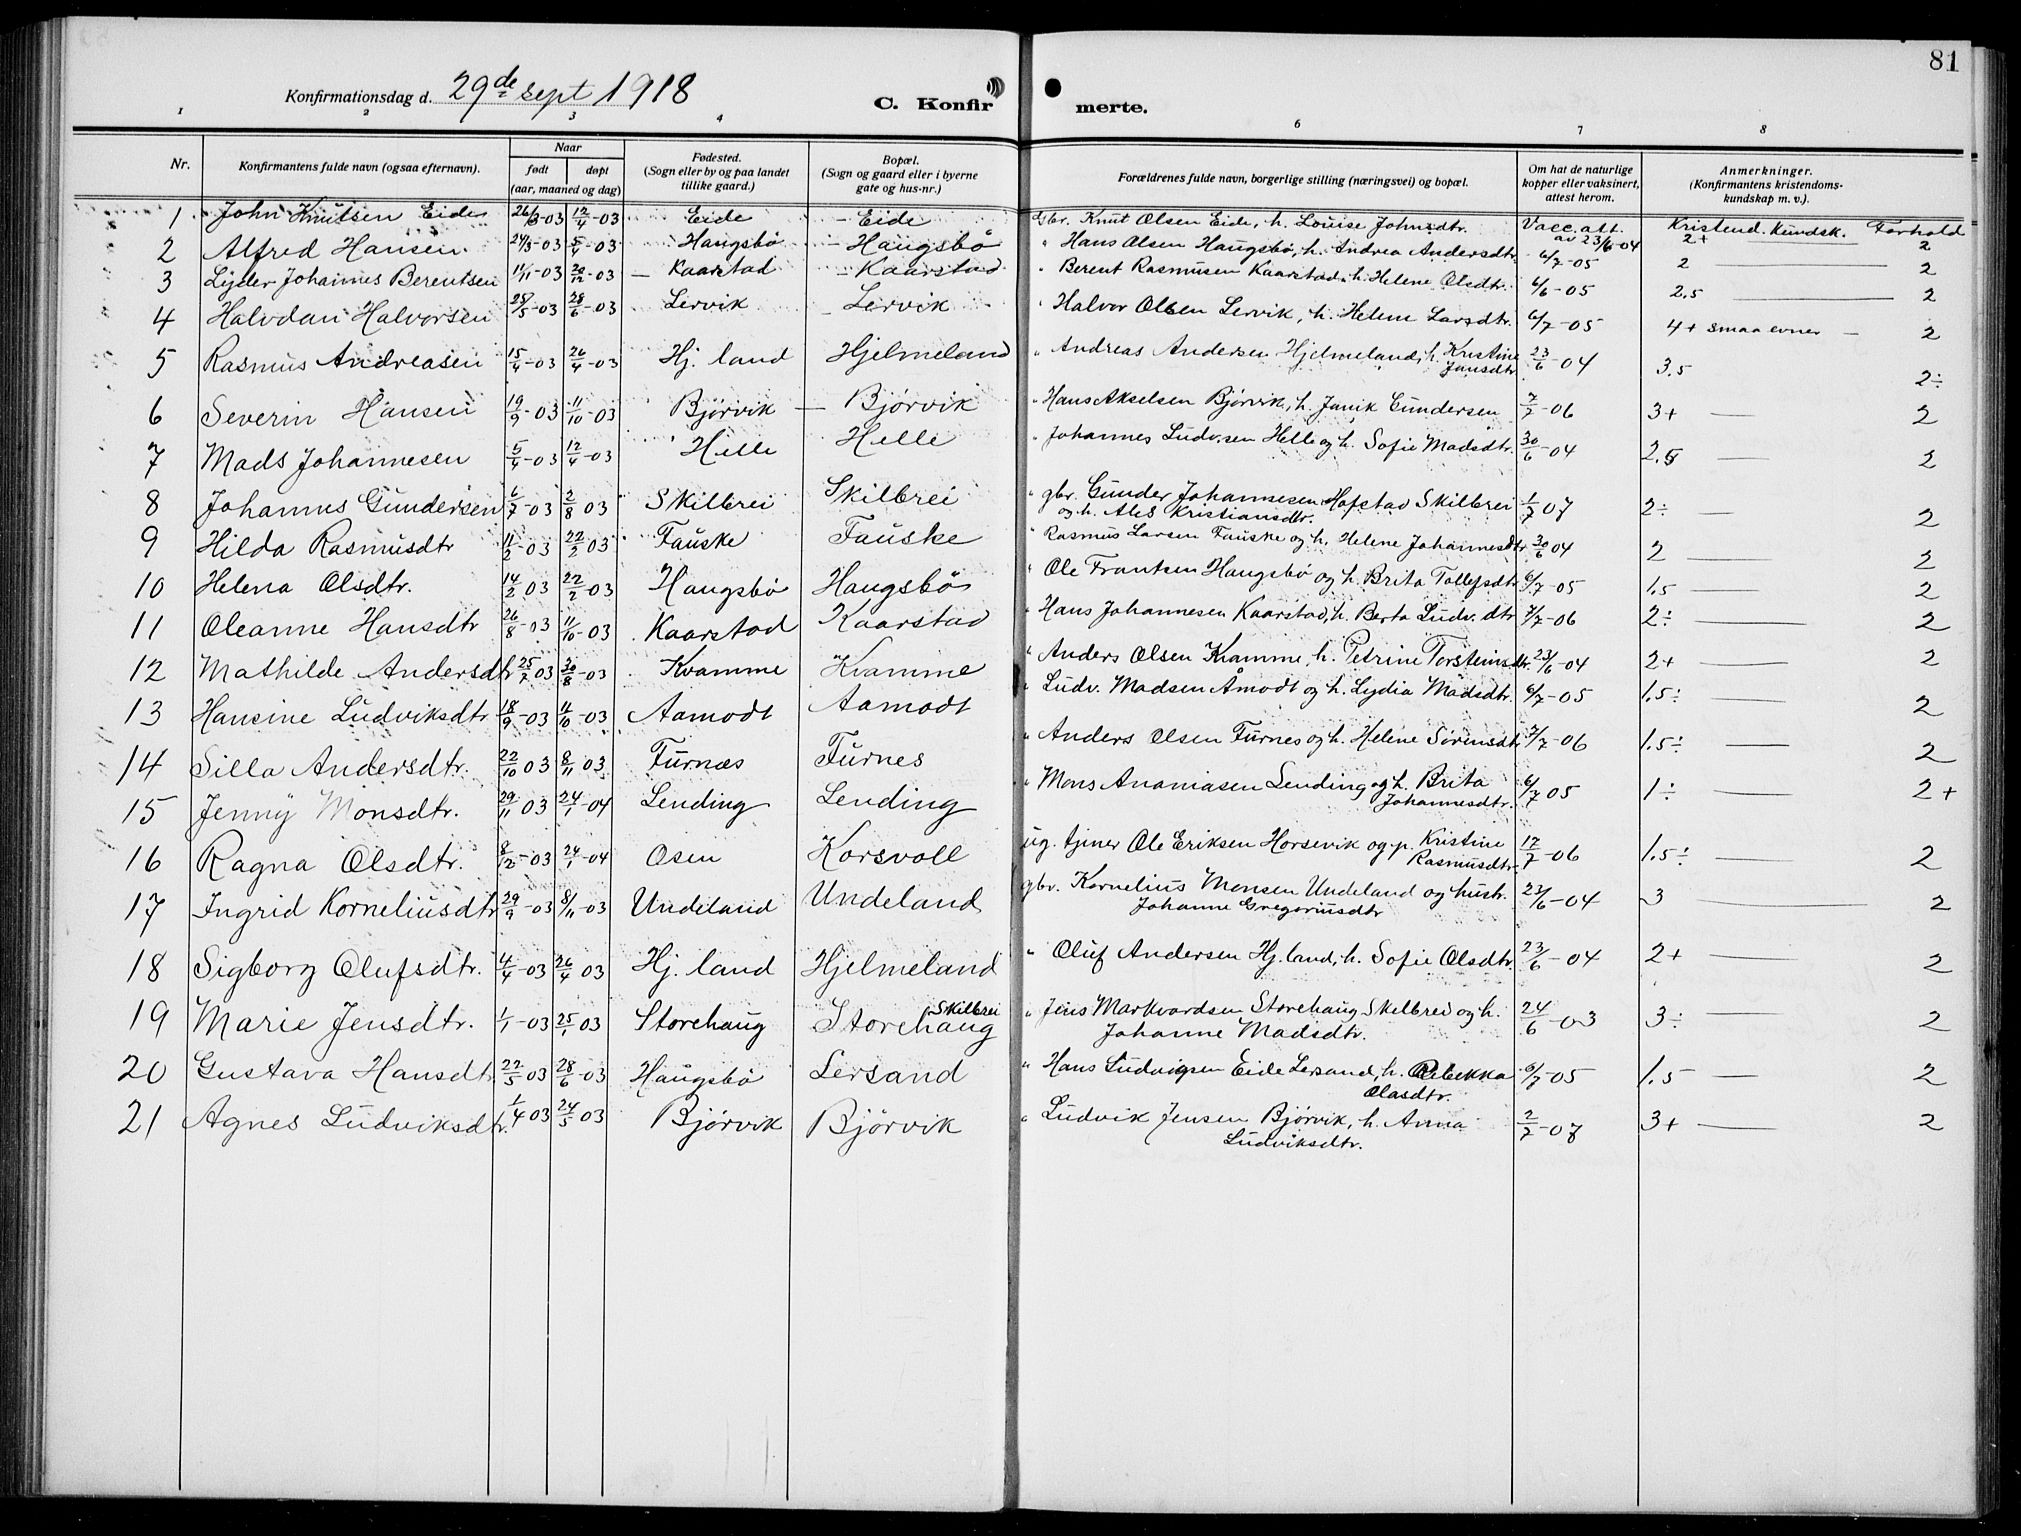 81
Konfirmationsdag d. 29de sept 1918
C. Konfirmerte.
1 2 3 4 6 7 8
Nr. Konfirmantens fulde navn (ogsaa efternavn). Naar født døpt (aar, maaned og dag) Fødested. (Sogn eller by og paa landet tillike gaard.) Bopæl. (Sogn og gaard eller i byerne gate og hus-nr.) Forældrenes fulde navn, borgerlige stilling (næringsvei) og bopæl. Om hat de naturlige kopper eller vaksinert, attest herom. Anmerkninger. (Konfirmantens kristendoms-kundskap m. v.).
1 John Knutsen Eide 26/3-03 12/4-03 Eide Eide Gbr. Knut Olsen Eide, h. Louise Johnsdtr. Vacc. att. av 23/6-04 Kristend. kundsk. 2+ Forhold 2
2 Alfred Hansen 24/3-03 5/4-03 Haugsbø Haugsbø " Hans Olsen Haugsbø, h. Andrea Andersdtr. 6/7-05 2 2
3 Lyder Johannes Berentsen 11/11-03 20/12-03 Kaarstad Kaarstad " Berent Rasmusen Kaarstad, h. Helene Olsdtr. 6/6-05 2.5 2
4 Halvdan Halvorsen 25/5-03 28/6-03 Lervik Lervik " Halvor Olsen Lervik, h. Helene Larsdtr. 6/7-05 4+ smaa evner 2
5 Rasmus Andreasen 15/4-03 26/4-03 Hj. land Hjelmeland " Andreas Andersen Hjelmeland, h. Kristine Jansdtr 23/6-04 3.5 2÷
6 Severin Hansen 19/9-03 11/10-03 Bjørvik Bjørvik " Hans Akselsen Bjørvik, h. Janik Gundersen 7/7-06 3+ 2
7 Mads Johannesen 5/4-03 12/4-03 Helle Helle " Johannes Ludv.sen Helle og h. Sofie Madsdtr. 30/6-04 2.5 2
8 Johannes Gundersen 6/7-03 2/8 03 Skilbrei Skilbrei " gbr. Gunder Johannesen Hafstad Skilbrei og h. Ales Kristiansdtr. 1/7 07 2÷ 2
9 Hilda Rasmusdtr 11/2-03 22/2 03 Fauske Fauske " Rasmus Larsen Fauske og h. Helene Johannesdtr 30/6 04 2 2
10 Helena Olsdtr. 14/2 03 22/2-03 Haugsbø Haugsbø " Ole Frantsen Haugsbø og h. Brita Tollefsdtr 6/7-05 1.5 2
11 Oleanne Hansdtr 26/8-03 11/10-03 Kaarstad Kaarstad " Hans Johannesen Kaarstad, h. Berta Ludv. dtr 7/7-06 2÷ 2
12 Mathilde Andersdtr 25/7 03 30/8-03 Kvamme Kvamme " Anders Olsen Kvamme, h. Petrine Torsteinsdtr. 23/6-04 2+ 2
13 Hansine Ludviksdtr 18/9-03 11/10-03 Aamodt Aamodt " Ludv. Madsen Åmodt og h. Lydia Madsdtr 6/7-05 1.5÷ 2
14 Silla Andersdtr. 22/10 03 8/11 03 Furnæs Furnes " Anders Olsen Furnes og h. Helene Sørensdtr 7/7-06 1.5÷ 2
15 Jenny Monsdtr. 29/11 03 24/1-04 Lending Lending " Mons Ananiasen Lending og h. Brita Johannesdtr. 6/7 05 1÷ 2+
16 Ragna Olsdtr. 8/12-03 24/1-04 Osen Korsvoll ug. tjener Ole Eriksen Horsevik og p. Kristine Rasmusdtr 17/7-06 1.5÷ 2
17 Ingrid Korneliusdtr 29/9-03 8/11-03 Undeland Undeland gbr. Kornelius Monsen Undeland og hustr. Johanne Gregoriusdtr 23/6-04 3 2
18 Sigborg Olufsdtr. 4/4-03 26/4 03 Hj. land Hjelmeland " Oluf Andersen Hj. land, h. Sofie Olsdtr. 23/6-04 2+ 2
19 Marie Jensdtr. 1/1-03 25/1 03 Storehaug Storehaug Skilbrei " Jens Markvardsen Storehaug Skilbrei og h. Johanne Madsdtr. 24/6-03 3÷ 2
20 Gustava Hansdtr. 22/5 03 28/6-03 Haugsbø Lersand " Hans Ludvigsen Eide Lersand, h. Rebekka Olasdtr. 6/7-05 1.5 2
21 Agnes Ludviksdtr. 1/4 03 24/5 03 Bjørvik Bjørvik " Ludvik Jensen Bjørvik, h. Anna Ludviksdtr. 2/7-07 3+ 2